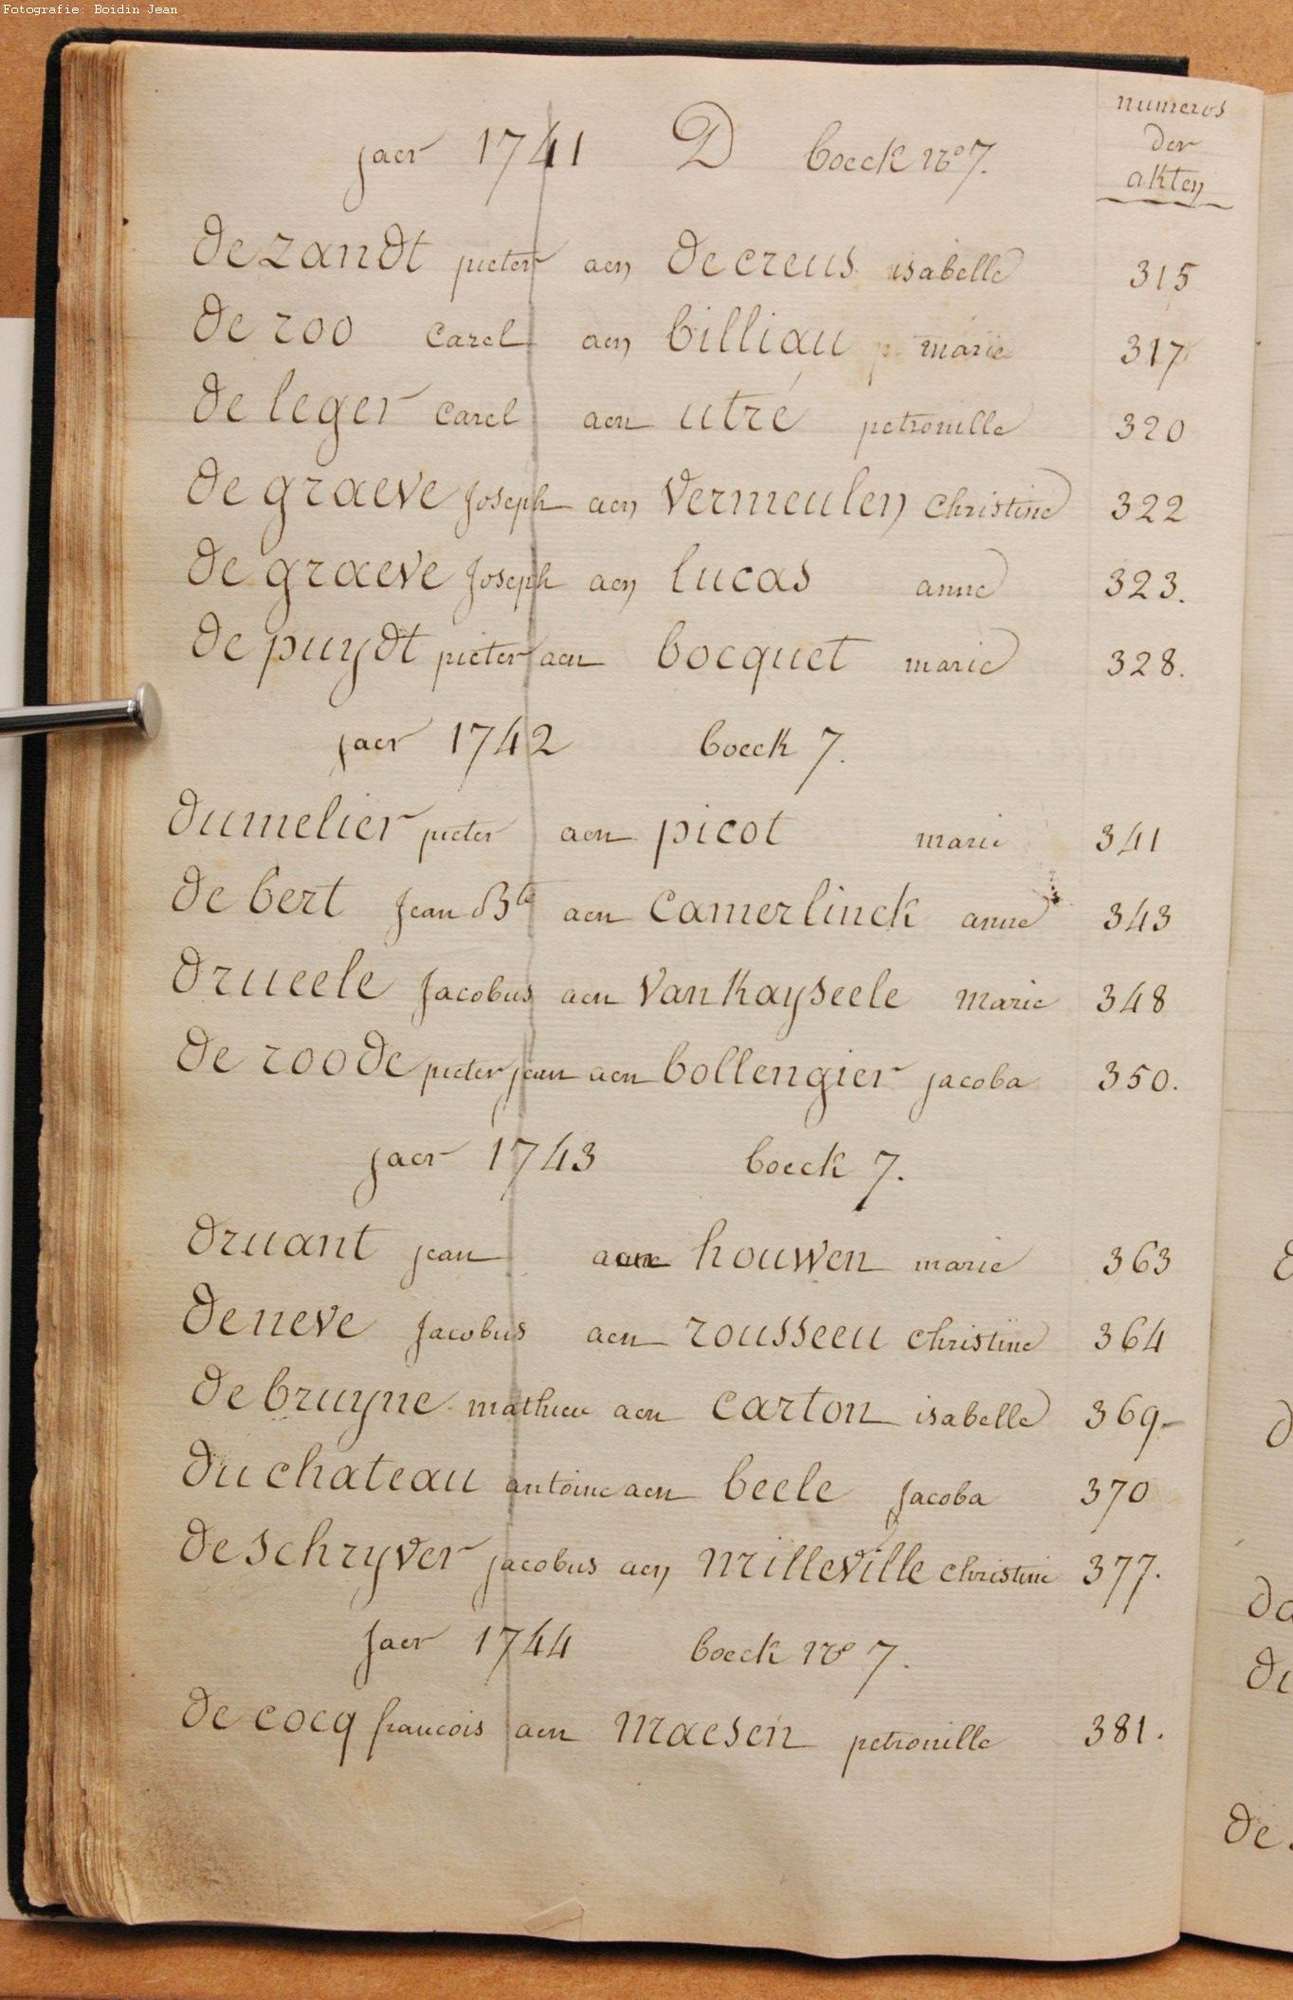 Fotografie: Boidin Jean
numeros
der
akten
jaer 1741 D boeck no 7.
de zandt pieter aen decreus isabelle 315
de roo carel aen billiau marie 317
de leger carel aen utré petronille 320
de graeve joseph aen vermeulen christine 322
de graeve joseph aen lucas anne 323.
de puydt pieter aen bocquet marie 328.
jaer 1742 boeck 7.
dumelier pieter aen picot marie 341
de bert jean Bte aen camerlinck anne 343
drueele jacobus aen vankayseele marie 348
de roode pieter jean aen bollengier jacoba 350.
jaer 1743 boeck 7.
druant jean aen houwen marie 363
deneve jacobus aen rousseeu christine 364
de bruyne mathieu aen carton isabelle 369-
du chateau antoine aen beele jacoba 370
deschryver jacobus aen milleville christine 377.
jaer 1744 boeck no 7.
de cocq francois aen maesen petronille 381.
de